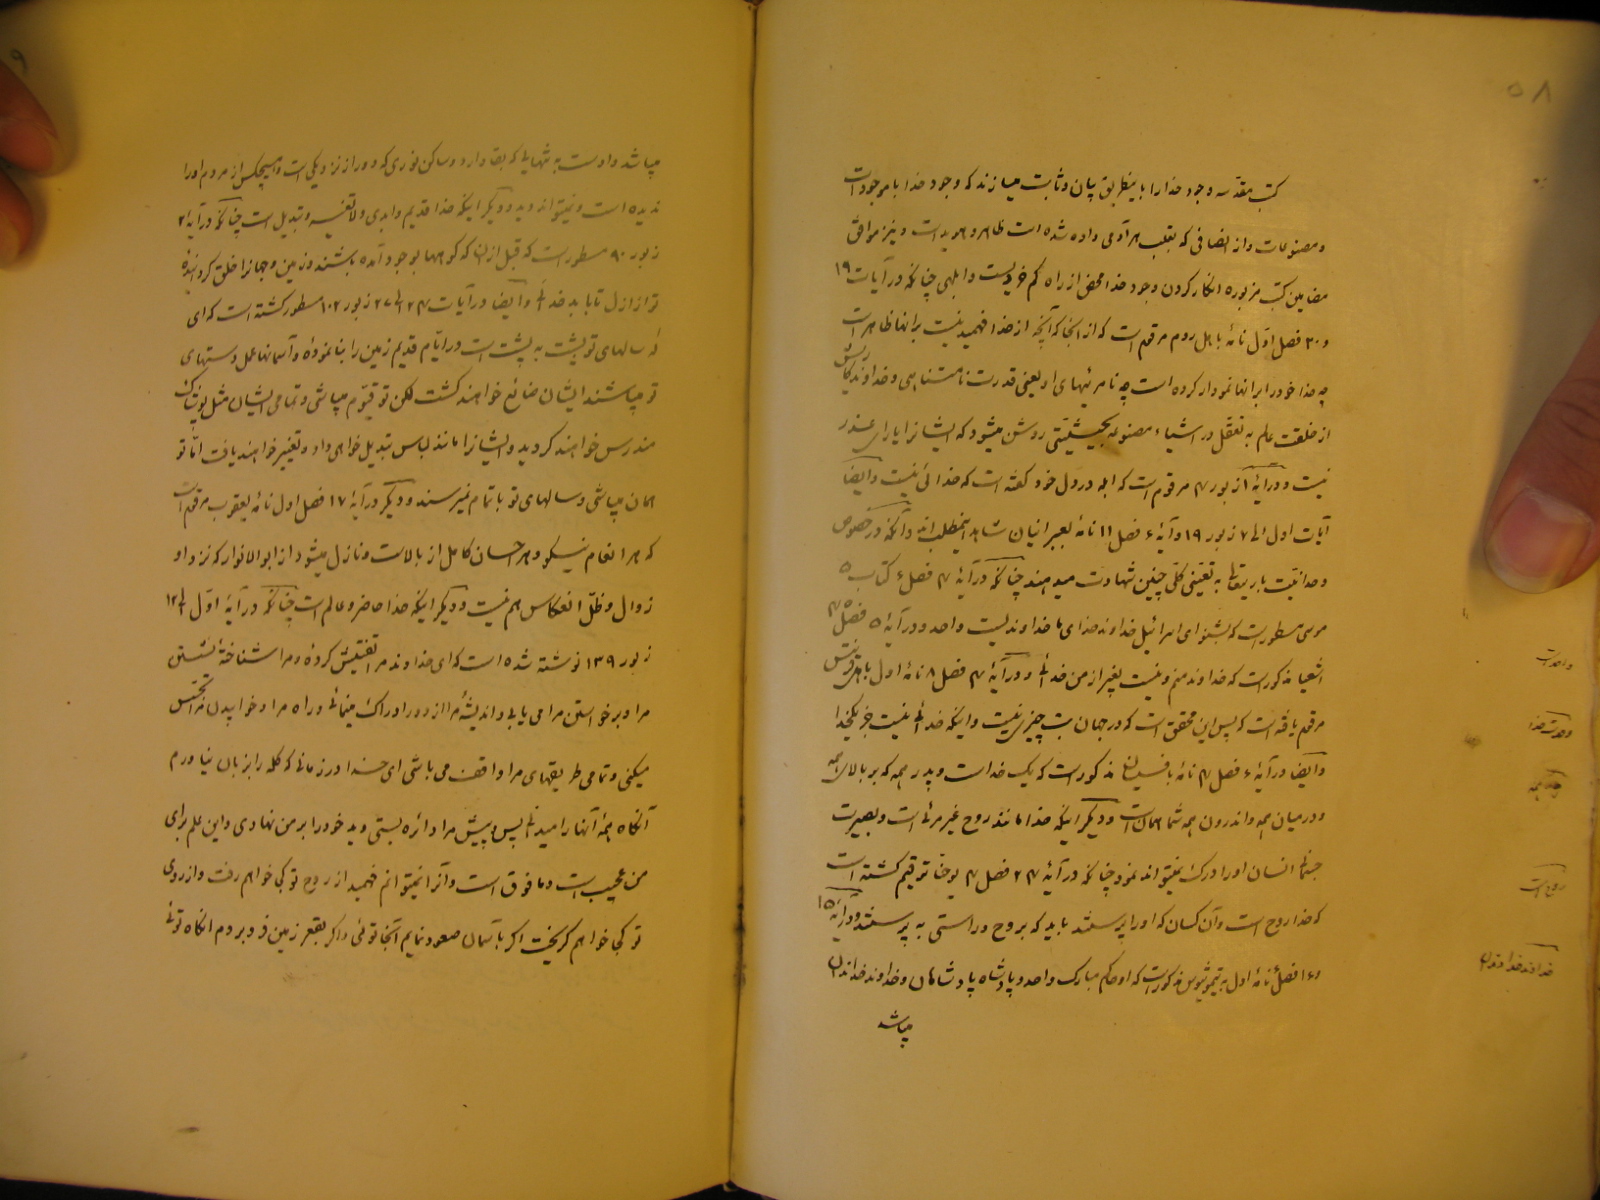 ۵۸
کتب مقدسه وجود خدا را باینطریق بیان و ثابت میسازند که وجود خدا با موجودات
و مصنوعات و از انصافی که بقلب هر آدمی داده شده است ظاهر و هویداست و نیز موافق
مضامین کتب مزبوره انکار کردن وجود خدا محض از راه کم خردیست و ابلهی چنانکه در آیات ۱۹
و ۲۰ فصل اول نامهٔ باهل روم مرقوم است که از آنجا که آنچه از خدا فهمیدنیست بر انها ظاهر است
چه خدا خود را بر انها نمودار کرده است چه نامرئیهای او یعنی قدرت نامتناهی و خداوندیکاش
از خلقت عالم به تعقل در اشیاء مصنوعه بحیثیتی روشن میشود که ایشانرا یارای عذر
نیست و در آیهٔ ۱ زبور ۱۴ مرقوم است که ابله در دل خود گفته است که خدائی نیست و ایضا
آیات اول الی ۷ زبور ۱۹ و آیهٔ ۶ فصل ۱۱ نامهٔ بعبرانیان شاهد اینمطلب‌اند و آنکه در خصوص
وحدانیت باریتعالی به تعینی کلی چنین شهادت میدهند چنانکه در آیهٔ ۴ فصل ۶ کتاب ۵
موسی مسطور است که بشنو ای اسرائیل خداوند خدای ما خداوندیست واحد و در آیهٔ ۵ فصل ۴۵
اشعیا مذکور است که خداوند منم و نیست بغیر از من خدائی و در آیهٔ ۴ فصل ۸ نامهٔ اول باهل قرنتس
مرقوم یافته است که پس این محقق است که در جهان بت چیزی نیست و اینکه خدائی نیست جز یکخدا
و ایضا در آیهٔ ۶ فصل ۴ نامهٔ بافسیان مذکور است که یک خداست و پدر همه که بر بالای همه
و در میان همه و اندرون همه شما همان است و دیگر اینکه خدا مانند روح غیر مرئی است و بصیرت
جسمانی انسان او را درک نمیتواند نمود چنانکه در آیهٔ ۲۴ فصل ۴ یوحنا ترقیم گشته است
که خدا روح است و آن کسان که او را پرستند باید که بروح و راستی به پرستند و در آیهٔ ۱۵
و ۱۶ فصل ۶ نامهٔ اول به تیموثیوس مذکور است که او حاکم مبارک واحد و پادشاه پادشاهان و خداوند خداوندان
میباشد
واحد است
وحدت خدا
روح است
خداوند خداوندان
میباشد و اوست به تنهائی که بقا دارد و ساکن نوری که دور از نزدیکی است و هیچکس از مردم او را
ندیده است و نمیتواند دید و دیگر اینکه خدا قدیم و ابدی و لاتغییر و تبدیل است چنانکه در آیهٔ ۲
زبور ۹۰ مسطور است که قبل از ان که کوهها بوجود آمده باشند و زمین و جهانرا خلق کرده‌ باشی
تو از ازل تا بابد خدائی و ایضا در آیات ۲۴ الی ۲۷ زبور ۱۰۲ مسطور گشته است که ای
که سالهای تو پشت به پشت است در ایام قدیم زمین را بنا نمودهٔ و آسمانها عمل دستهای
تو میباشند ایشان ضائع خواهند گشت لکن تو قیوم میباشی و تمامی ایشان مثل پوشاک
مندرس خواهند گردید و ایشانرا مانند لباس تبدیل خواهی داد و تغییر خواهند یافت اما تو
همان میباشی و سالهای تو باتمام نمیرسند و دیگر در آیهٔ ۱۷ فصل اول نامهٔ یعقوب مرقوم است
که هر انعام نیکو و هر احسان کامل از بالاست و نازل میشود از ابو الانوار که نزد او
زوال و ظل انعکاس هم نیست و دیگر اینکه خدا حاضر و عالم است چنانکه در آیهٔ اول الی ۱۲
زبور ۱۳۹ نوشته شده است که ای خداوند مرا تفتیش کردهٔ و مرا شناختهٔ نشستن
مرا و برخواستن مرا می یابی و اندیشهٔ مرا از دور ادراک مینمائی و راه مرا و خوابیدن مرا تجسس
میکنی و تمامی طریقهای مرا واقف می باشی ای خدا در زمانی که کلمه را بزبان نیاورم
آنگاه همهٔ آنها را میدانی پس و پیش مرا دائره بستی و ید خود را بر من نهادی و این علم برای
من عجیب است و مافوق است و آنرا نمیتوانم فهمید از روح تو کجا خواهم رفت و از روی
تو کجا خواهم گریخت اگر بآسمان صعود نمایم آنجا توئی و اگر بقعر زمین فرو بردم انگاه توئی